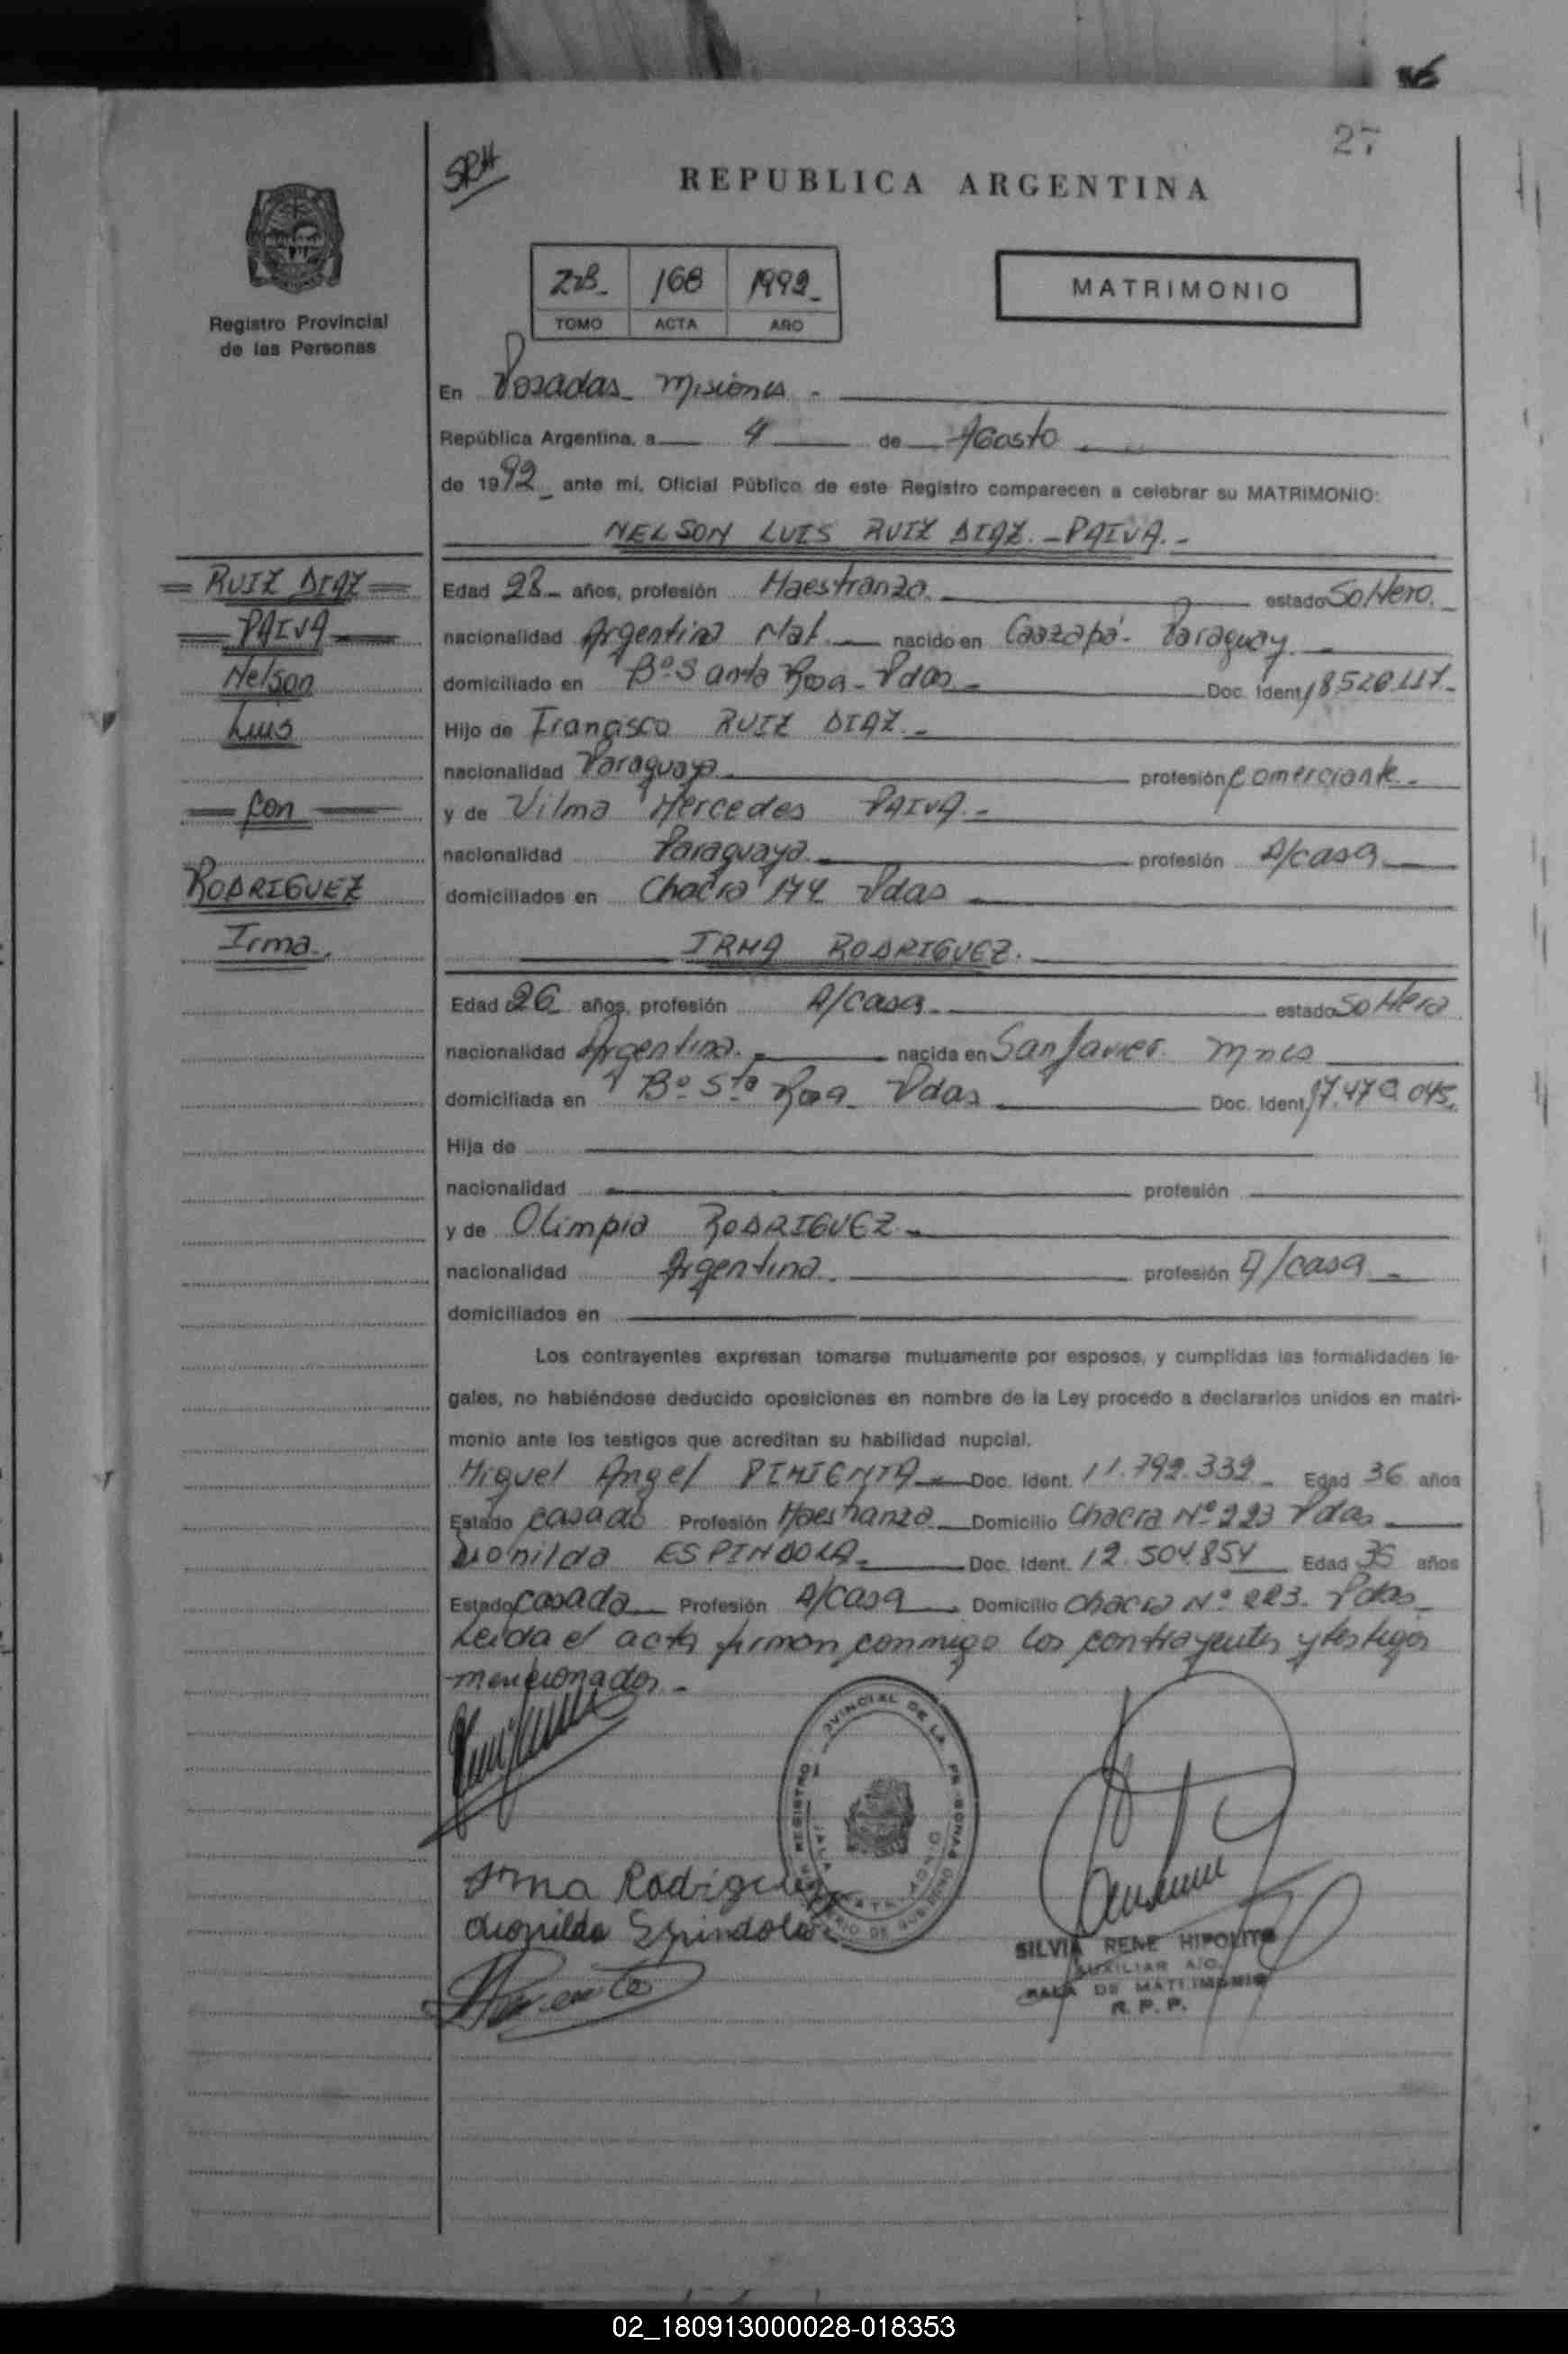 27
SRH
REPUBLICA ARGENTINA
Registro Provincial
de las Personas
168 1992_
TOMO ACTA AÑO
MATRIMONIO
En Posadas_ Misiones -
República Argentina, a 4 de Agosto
de 1992_ ante mí, Oficial Público de este Registro comparecen a celebrar su MATRIMONIO:
NELSON LUIS RUIZ DIAZ.-PAIVA.-
= RUIZ DIAZ =
= PAIVA =
Nelson
Luis
= Con =
RODRIGUEZ
Irma.
Edad 28_ años, profesión Maestranza. estado Soltero.
nacionalidad Argentina Nat. nacido en Caazapá- Paraguay.
domiciliado en Bº Santa Rosa- Pdas- Doc. Ident.
Hijo de Francisco RUIZ DIAZ.-
nacionalidad Paraguaya profesión Comerciante.-
y de Vilma Mercedes PAIVA.-
nacionalidad Paraguaya. profesión A/casa
domiciliados en Chacra 174 Pdas
IRMA RODRIGUEZ.
Edad 26 años, profesión A/casa. estado Soltera
nacionalidad Argentina. nacida en San Javier. Mnes
domiciliada en Bº Sta Rosa- Pdas Doc. Ident.
Hija de
nacionalidad profesión
y de Olimpia RODRIGUEZ.-
nacionalidad Argentina. profesión A/casa
domiciliados en
Los contrayentes expresan tomarse mutuamente por esposos, y cumplidas las formalidades le-
gales, no habiéndose deducido oposiciones en nombre de la Ley procedo a declararlos unidos en matri-
monio ante los testigos que acreditan su habilidad nupcial.
Miguel Angel PIMIENTA- Doc. Ident. 11.792.332_ Edad 36 años
Estado casado Profesión Maestranza Domicilio Chacra Nº 223 Pdas
Lionilda ESPINDOLA- Doc. Ident. 12.504.854 Edad 35 años
Estado Casada Profesión A/casa Domicilio Chacra Nº 223. Pdas_
Leida el acta firman conmigo los contrayentes y testigos
mencionados.-
REGISTRO PROVINCIAL DE LA
Irma Rodriguez
Lionilda Espindola
SILVIA RENE HIPOLITO
AUXILIAR A/C.
SALA DE MATRIMONIO
R. P. P.
02_180913000028-018353